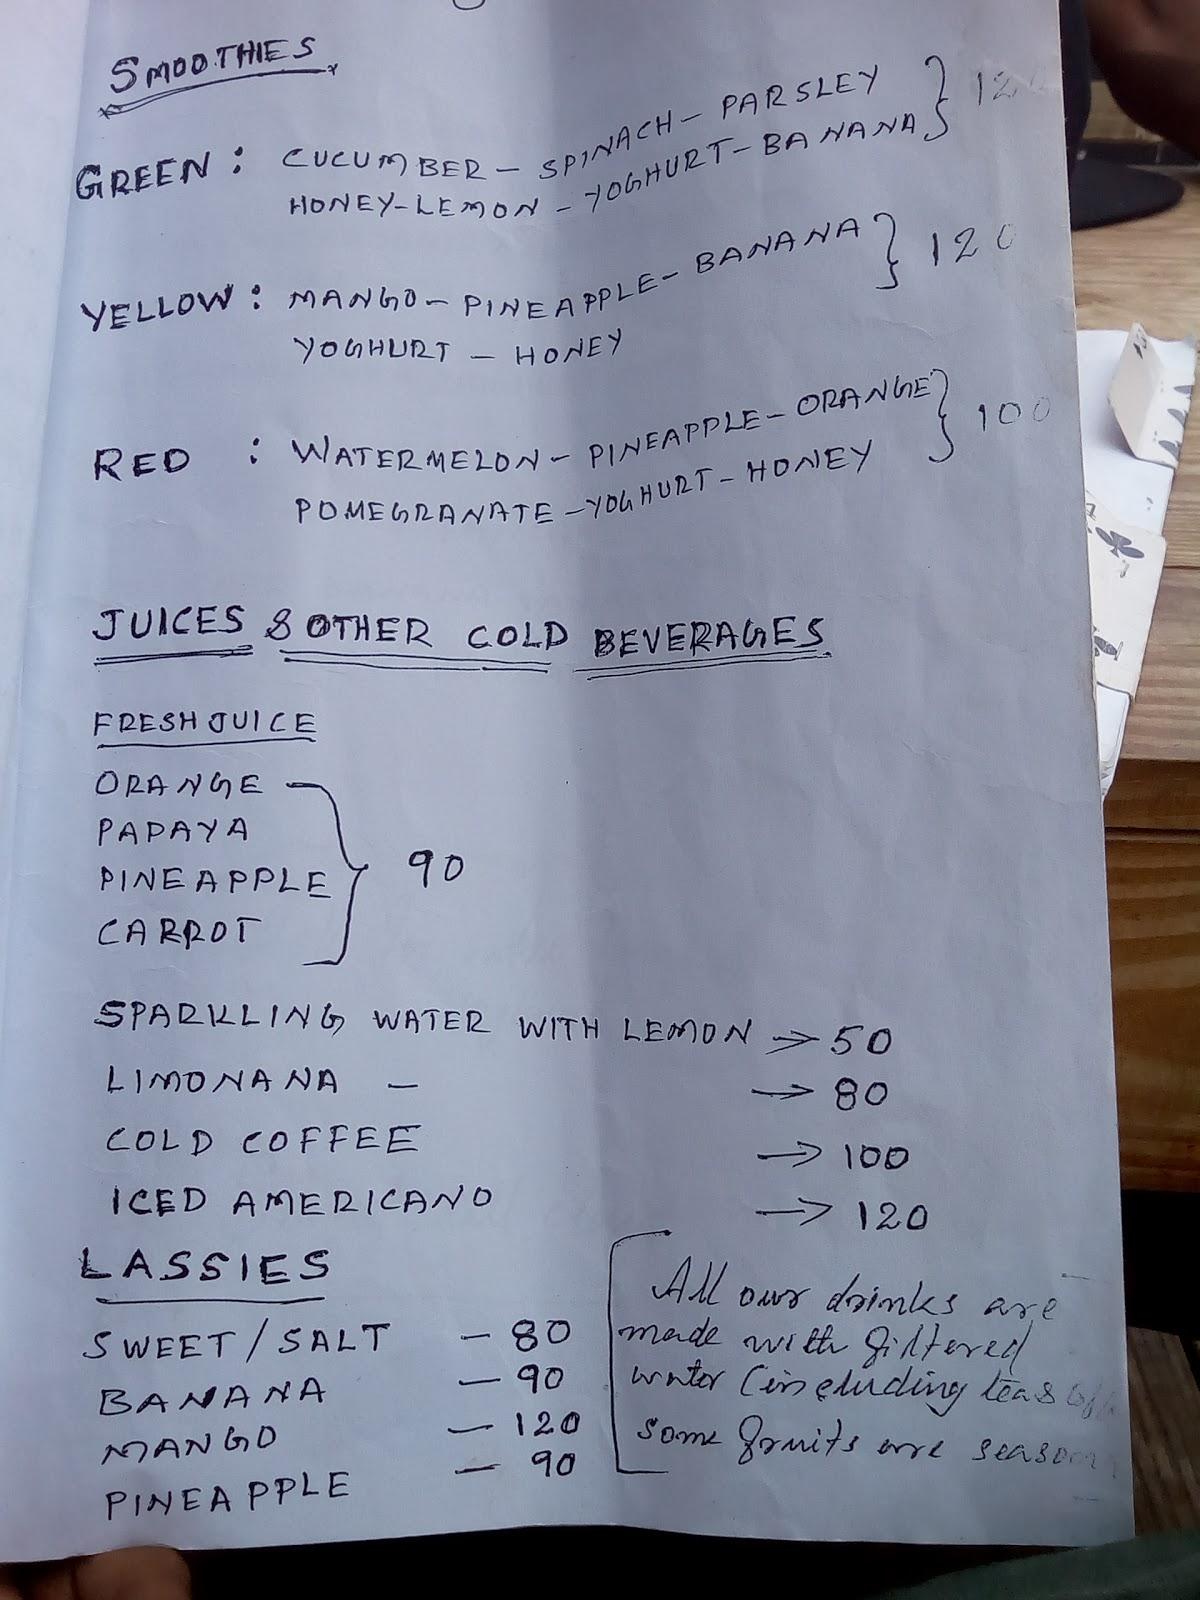 SMOOTHIES
GREEN : CUCUMBER - SPINACH - PARSLEY
HONEY-LEMON - YOGHURT-BANANA } 120
YELLOW : MANGO - PINEAPPLE - BANANA } 120
YOGHURT - HONEY
RED : WATERMELON - PINEAPPLE - ORANGE } 100
POMEGRANATE - YOGHURT - HONEY
JUICES & OTHER COLD BEVERAGES
FRESH JUICE
ORANGE
PAPAYA
PINEAPPLE } 90
CARROT
SPARKLING WATER WITH LEMON → 50
LIMONANA - → 80
COLD COFFEE → 100
ICED AMERICANO → 120
LASSIES
SWEET/SALT - 80
BANANA - 90
MANGO - 120
PINEAPPLE - 90
All our drinks are
made with filtered
water (including teas
some fruits are